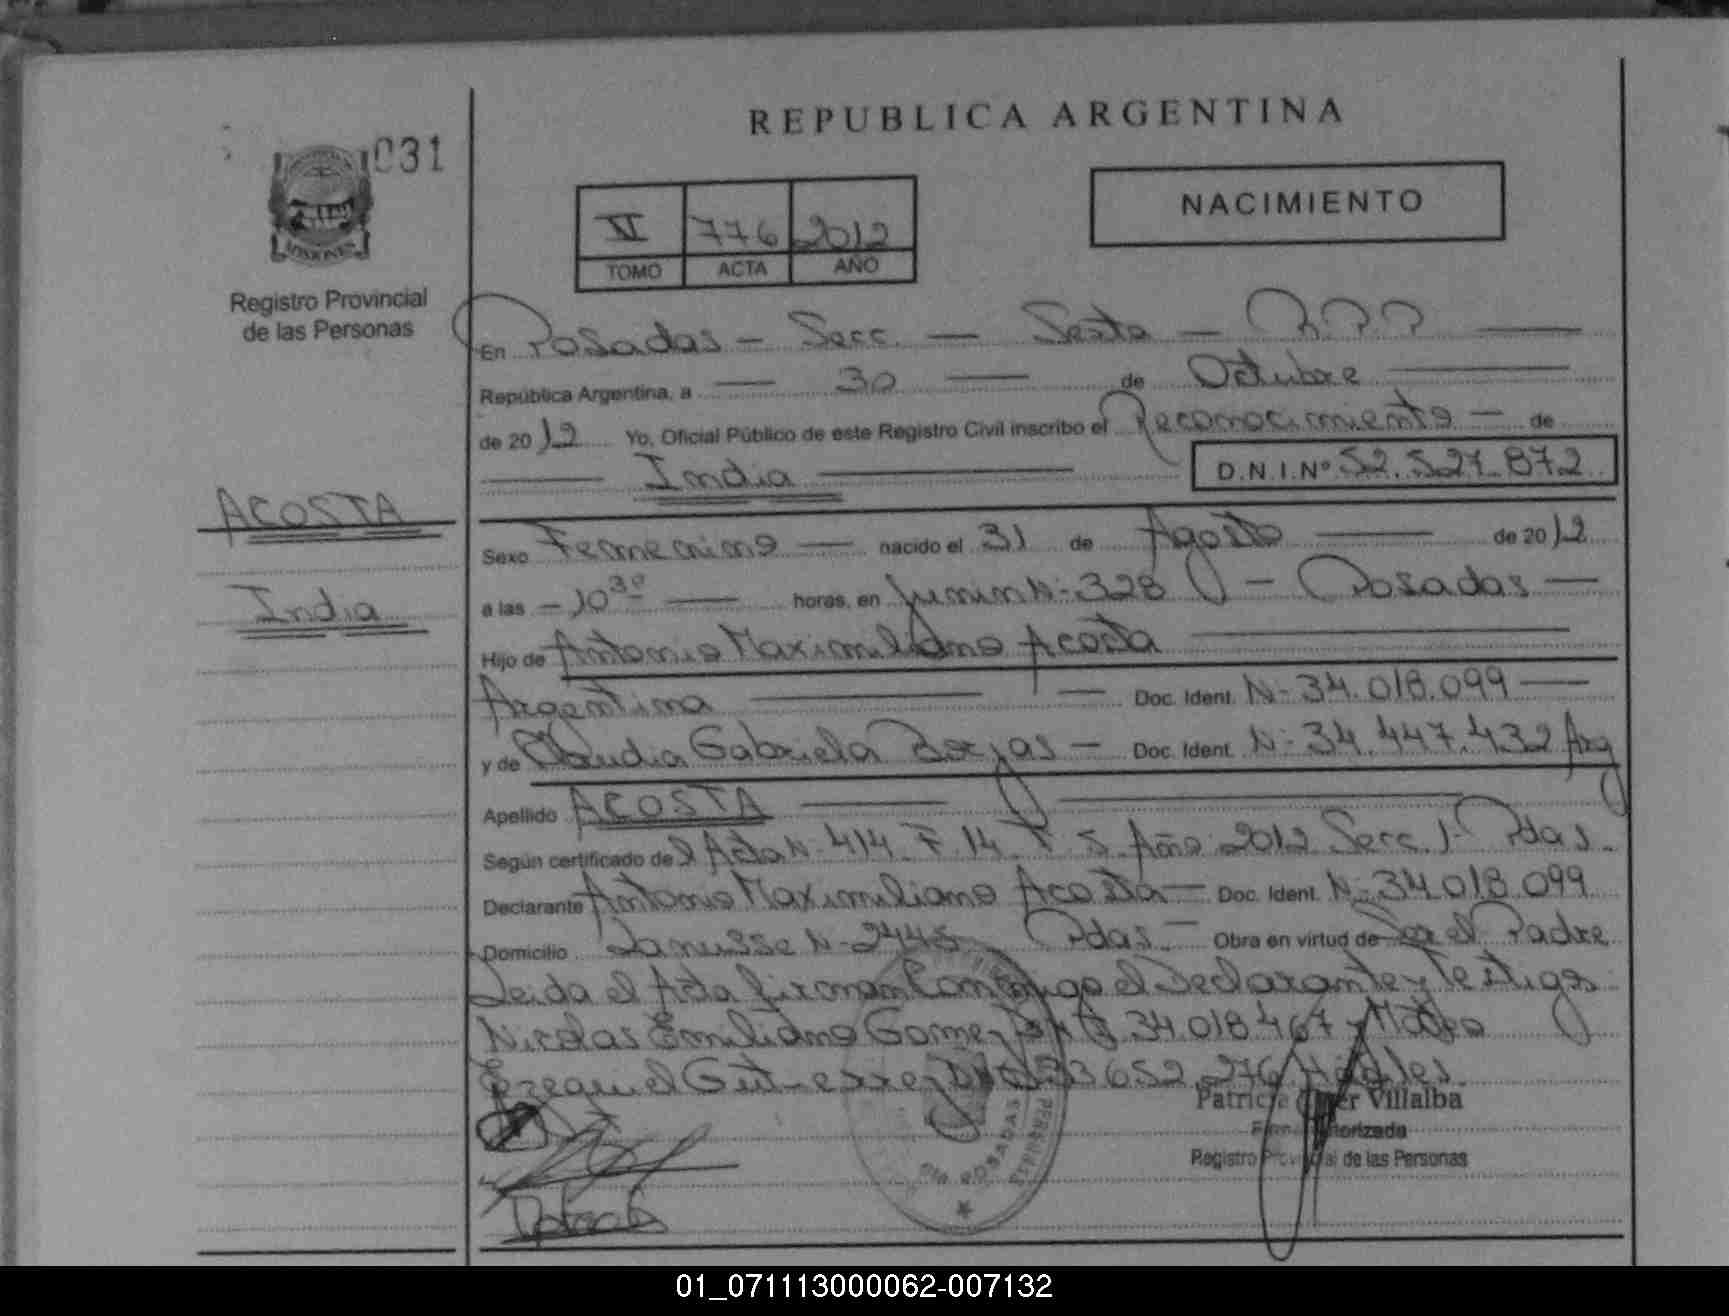 REPUBLICA ARGENTINA
031
MISIONES
Registro Provincial
de las Personas
VI 776 2012
TOMO ACTA AÑO
NACIMIENTO
En Posadas - Secc. — Sexta —
República Argentina, a — 30 — de Octubre —
de 2012 Yo, Oficial Público de este Registro Civil inscribo el Reconocimiento — de
— India — D.N.I.Nº 52.527.872
ACOSTA
India
Sexo Femenino — nacido el 31 de Agosto — de 2012
a las - 10 30 — horas, en Junin N- 328 - Posadas —
Hijo de Antonio Maximiliano Acosta —
Argentina — Doc. Ident. N- 34.018.099 —
y de Claudia Gabriela Borjas — Doc. Ident. N- 34.447.432 Arg
Apellido ACOSTA —
Según certificado del Acta N- 414 F 14 T 5 Año 2012 Secc. 1- Pdas.
Declarante Antonio Maximiliano Acosta — Doc. Ident. N- 34.018.099
Domicilio Lanusse N- 2445 Pdas. — Obra en virtud de Ser el Padre
Leida el Acta firman Conmigo el Declarante y Testigos
Nicolas Emiliano Gomez 34.018.467 y
Ezequiel Gutierrez 33.652.276 Habiles
Patricia Villalba
Firma Autorizada
Registro Provincial de las Personas
POSADAS
01_071113000062-007132